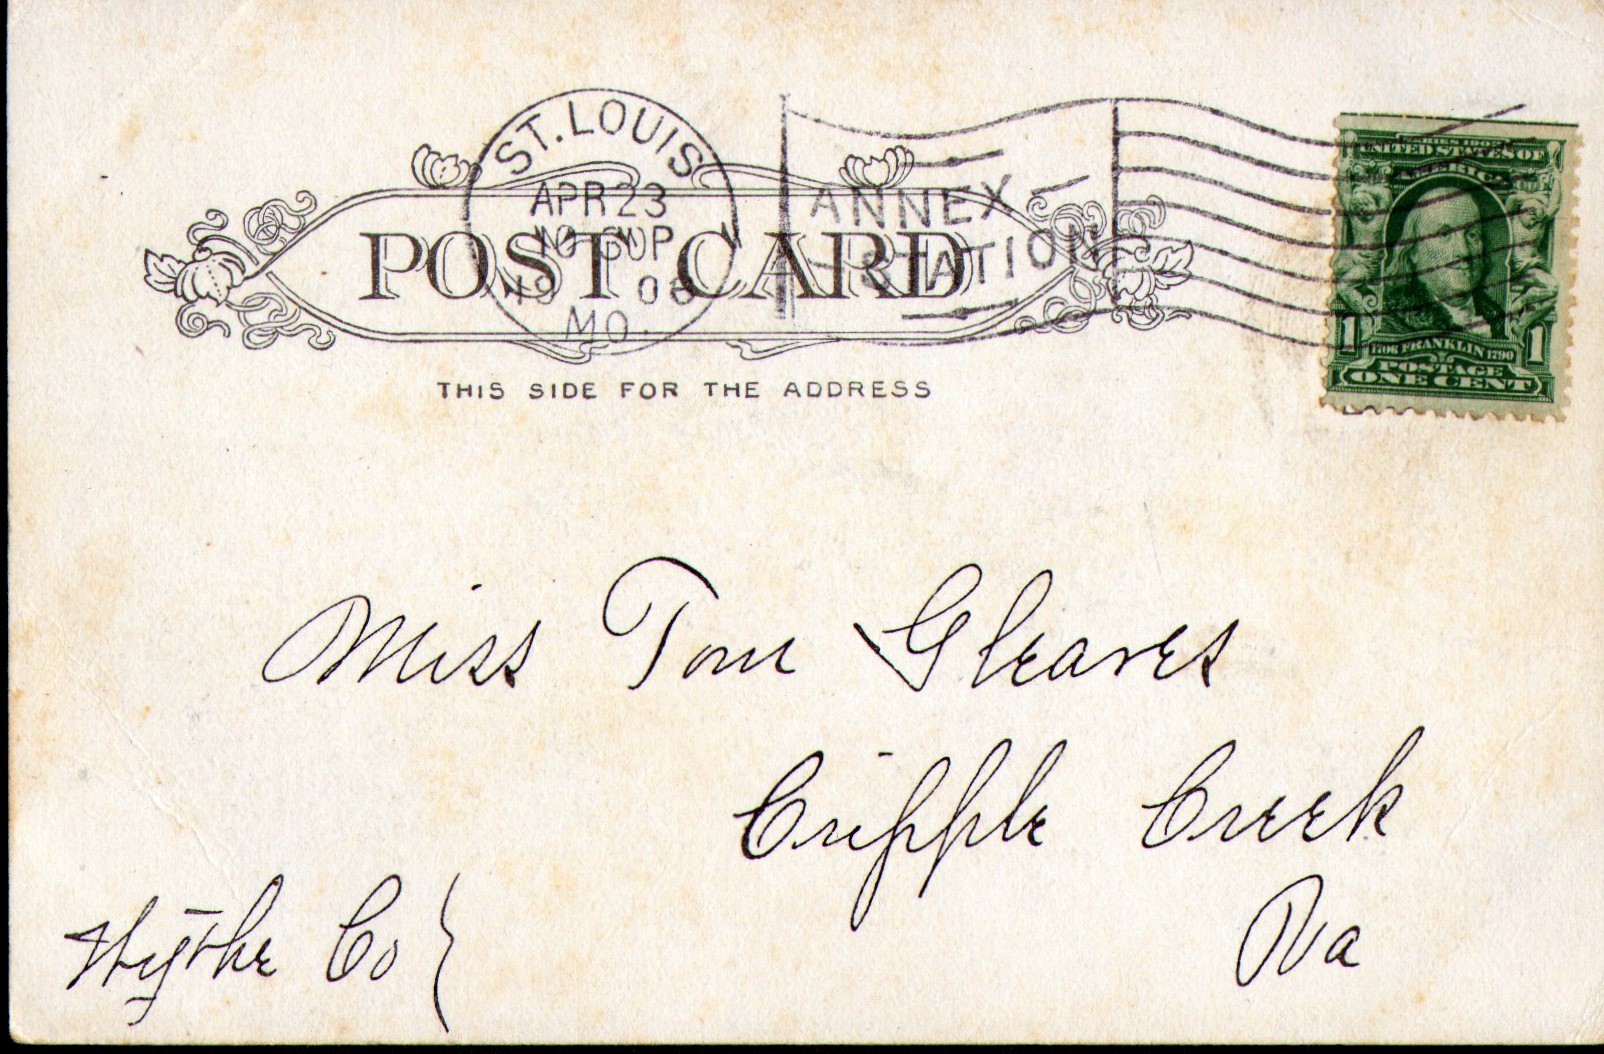 ST. LOUIS
APR 23
MO.
ANNEX
STATION
POST CARD
THIS SIDE FOR THE ADDRESS
UNITED STATES OF
AMERICA
1706 FRANKLIN 1790
1 1
POSTAGE
ONE CENT
Miss Tom Gleaves
Cripple Creek
Va
Wythe Co